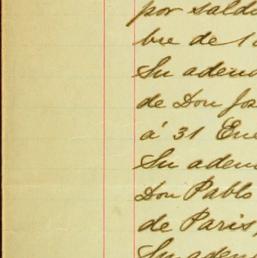 por saldo
bre de 1
Su adeu
de Don Jo
á 31 Ene
Su adeu
Don Pablo
de Paris,
Su adeu